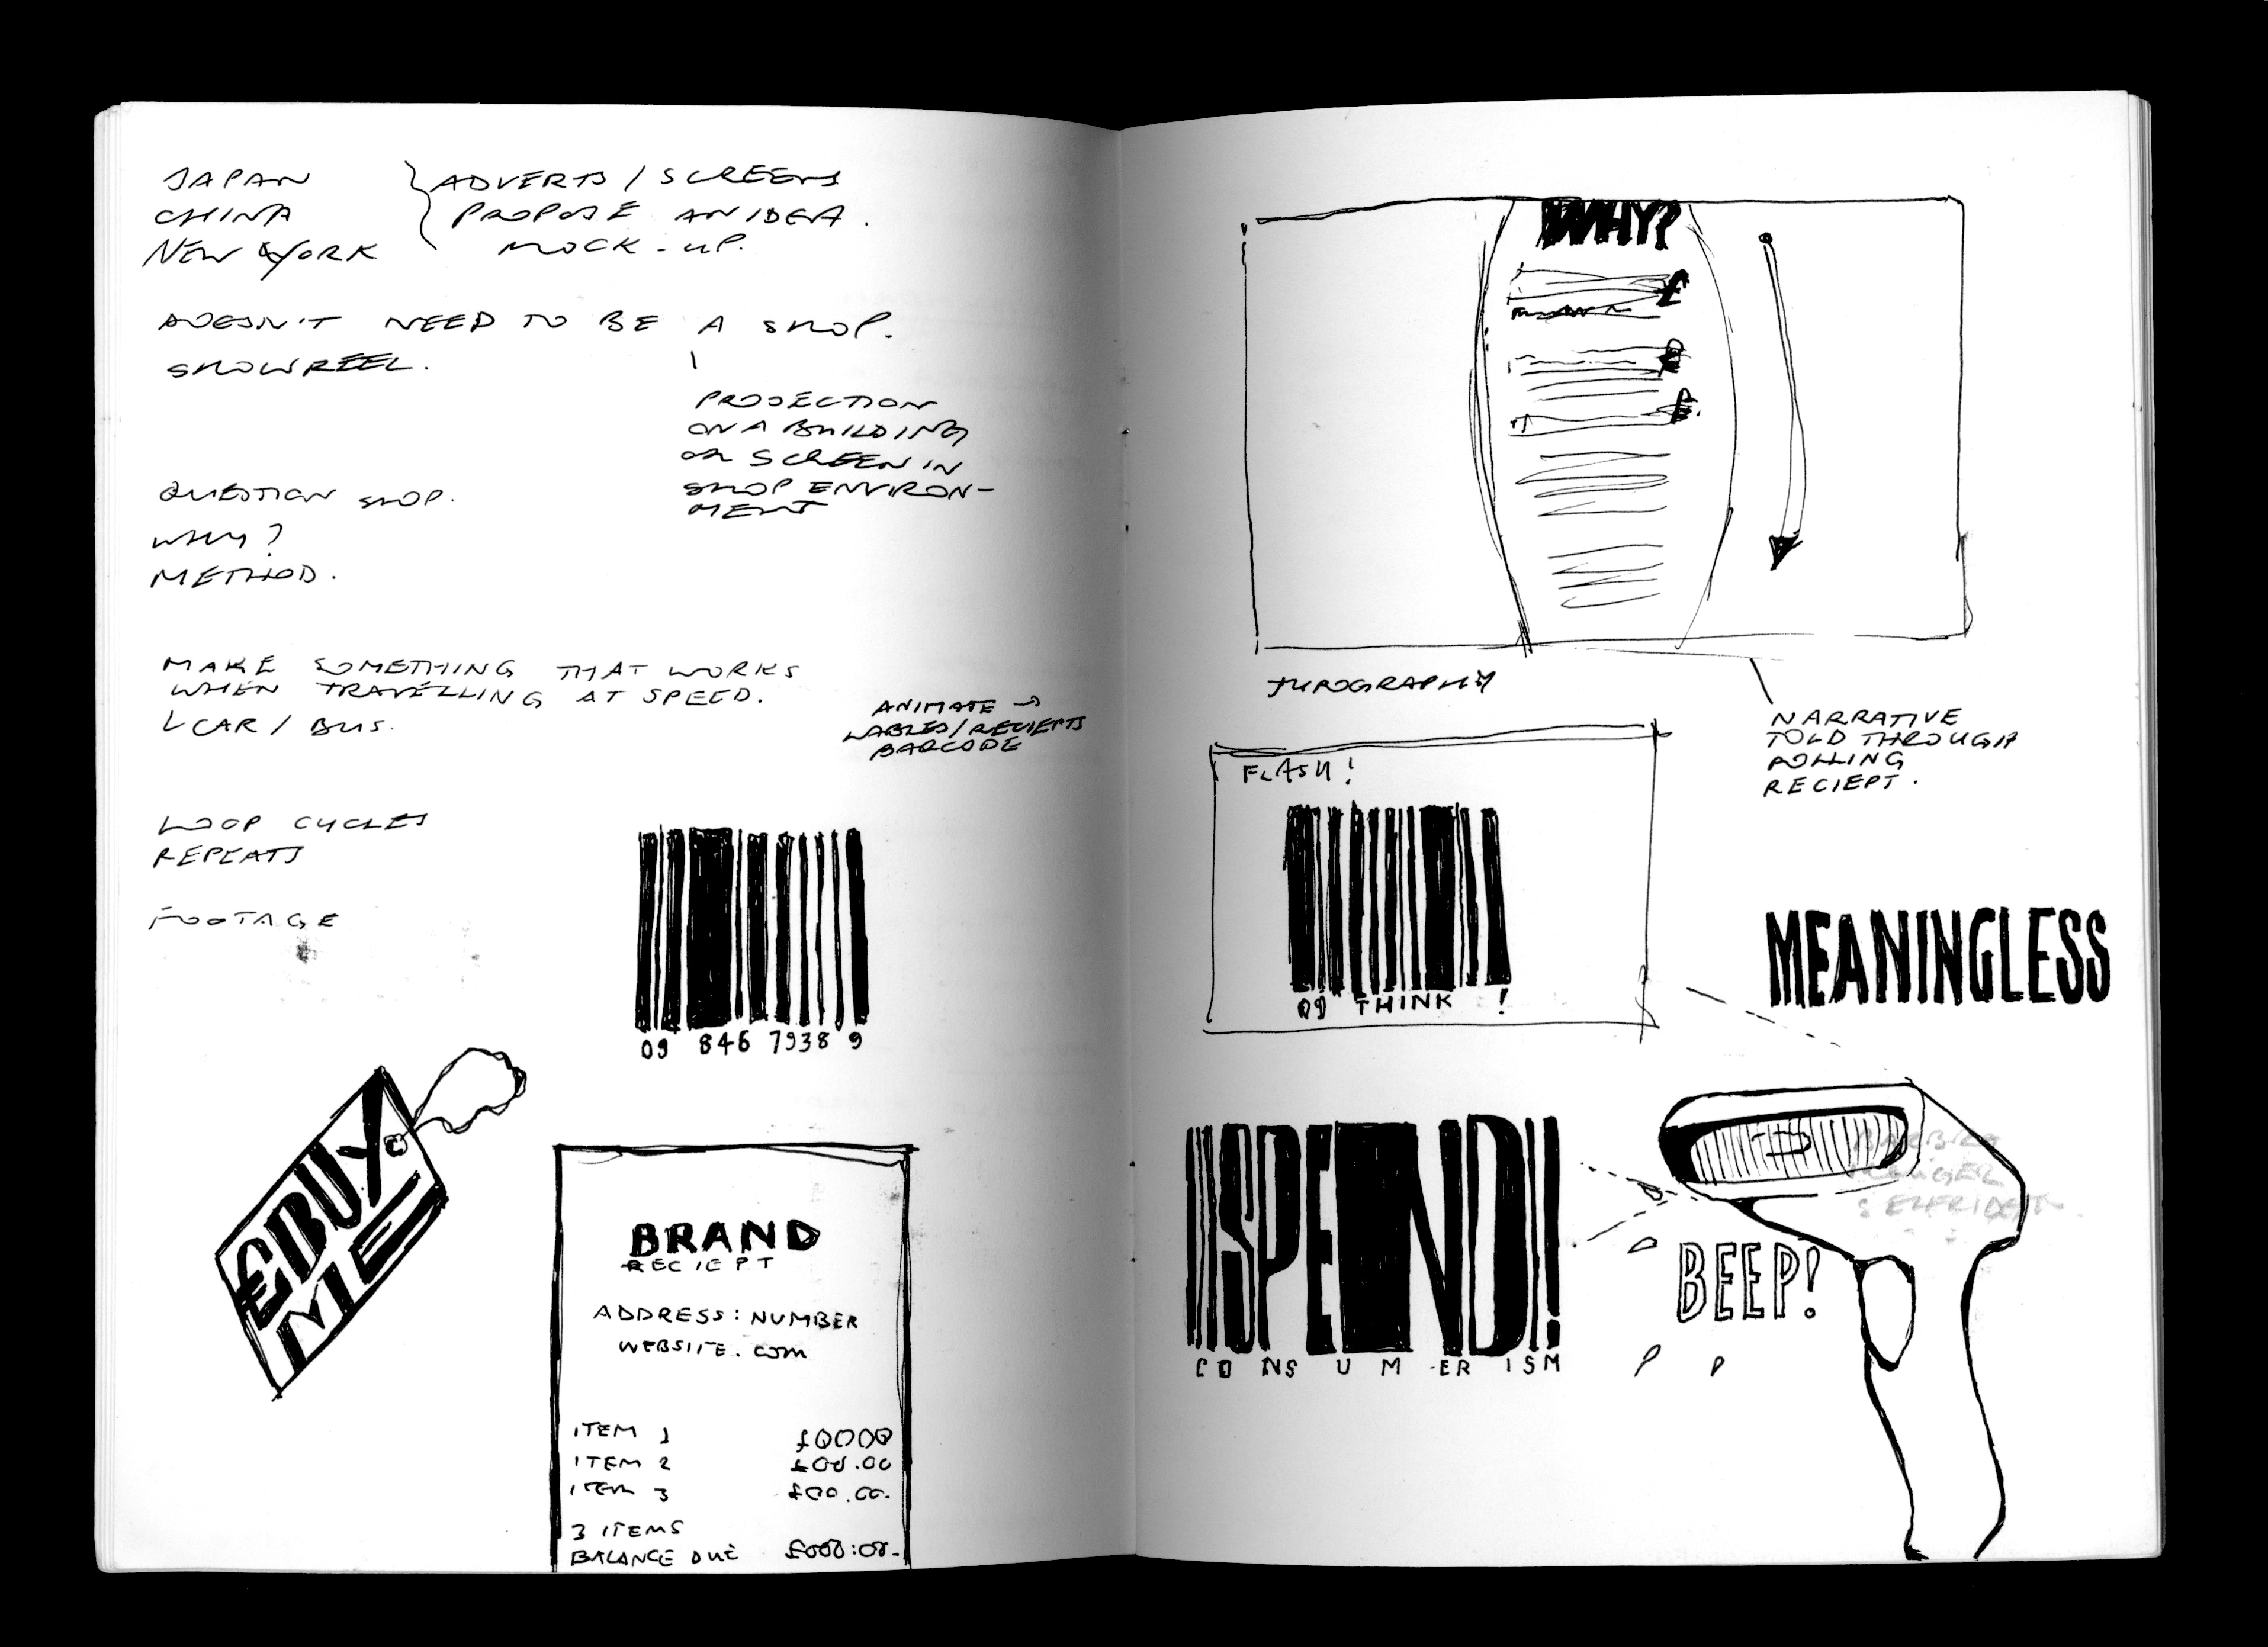 JAPAN
CHINA
NEW YORK
ADVERTS / SCREENS
PROPOSE AN IDEA.
MOCK-UP.
DOESN'T NEED TO BE A SHOP.
SHOWREEL.
PROJECTION
ON A BUILDING
OR SCREEN IN
SHOP ENVIRON-
MENT
QUESTION SHOP.
WHY?
METHOD.
MAKE SOMETHING THAT WORKS
WHEN TRAVELLING AT SPEED.
CAR / BUS.
ANIMATE →
LABLES/RECIEPTS
BARCODE
LOOP CYCLES
REPEATS
FOOTAGE
09 846 7938 9
£BUY
ME
BRAND
RECIEPT
ADDRESS: NUMBER
WEBSITE.COM
ITEM 1 £0000
ITEM 2 £00.00
ITEM 3 £00.00.
3 ITEMS
BALANCE DUE £000:00.
WHY?
£
£
£
TYPOGRAPHY
NARRATIVE
TOLD THROUGH
ROLLING
RECIEPT.
FLASH!
09 THINK !
MEANINGLESS
SPEND!
CONSUMERISM
BEEP!